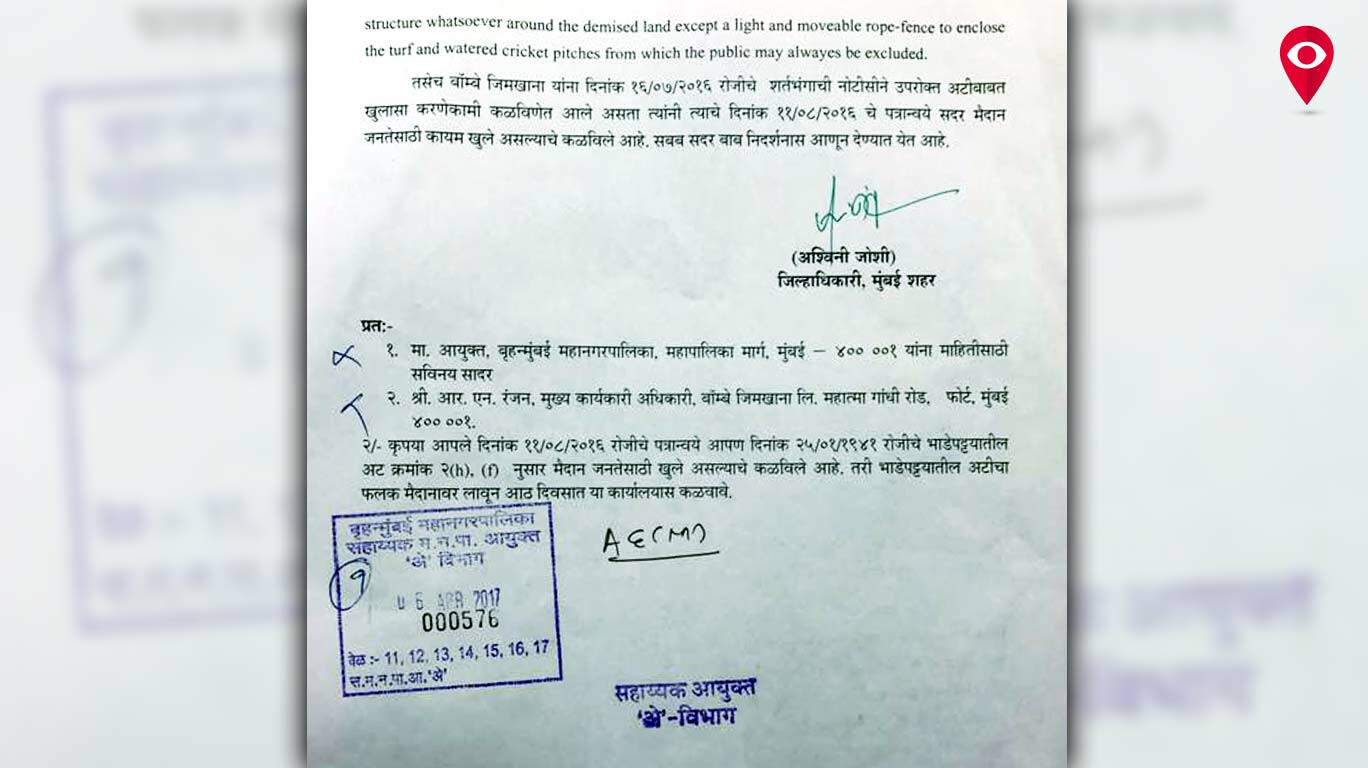 structure whatsoever around the demised land except a light and moveable rope-fence to enclose
the turf and watered cricket pitches from which the public may alwayes be excluded.
तसेच बॉम्बे जिमखाना यांना दिनांक १६/०७/२०१६ रोजीचे शर्तभंगाची नोटीसीने उपरोक्त अटीबाबत
खुलासा करणेकामी कळविणेत आले असता त्यांनी त्याचे दिनांक ११/०८/२०१६ चे पत्रान्वये सदर मैदान
जनतेसाठी कायम खुले असल्याचे कळविले आहे. सबब सदर बाब निदर्शनास आणून देण्यात येत आहे.
(अश्विनी जोशी)
जिल्हाधिकारी, मुंबई शहर
प्रतः-
१. मा. आयुक्त, बृहन्मुंबई महानगरपालिका, महापालिका मार्ग, मुंबई – ४०० ००१ यांना माहितीसाठी
सविनय सादर
२. श्री. आर. एन. रंजन, मुख्य कार्यकारी अधिकारी, बॉम्बे जिमखाना लि. महात्मा गांधी रोड, फोर्ट, मुंबई
४०० ००१.
२/- कृपया आपले दिनांक ११/०८/२०१६ रोजीचे पत्रान्वये आपण दिनांक २५/०१/१९४१ रोजीचे भाडेपट्टयातील
अट क्रमांक २(h), (f) नुसार मैदान जनतेसाठी खुले असल्याचे कळविले आहे. तरी भाडेपट्टयातील अटीचा
फलक मैदानावर लावून आठ दिवसात या कार्यालयास कळवावे.
बृहन्मुंबई महानगरपालिका
सहाय्यक म.न.पा. आयुक्त
'अे' विभाग
06 APR 2017
000576
वेळ :- 11, 12, 13, 14, 15, 16, 17
स.म.न.पा.आ.'अे'
AE(M)
सहाय्यक आयुक्त
'अे'-विभाग